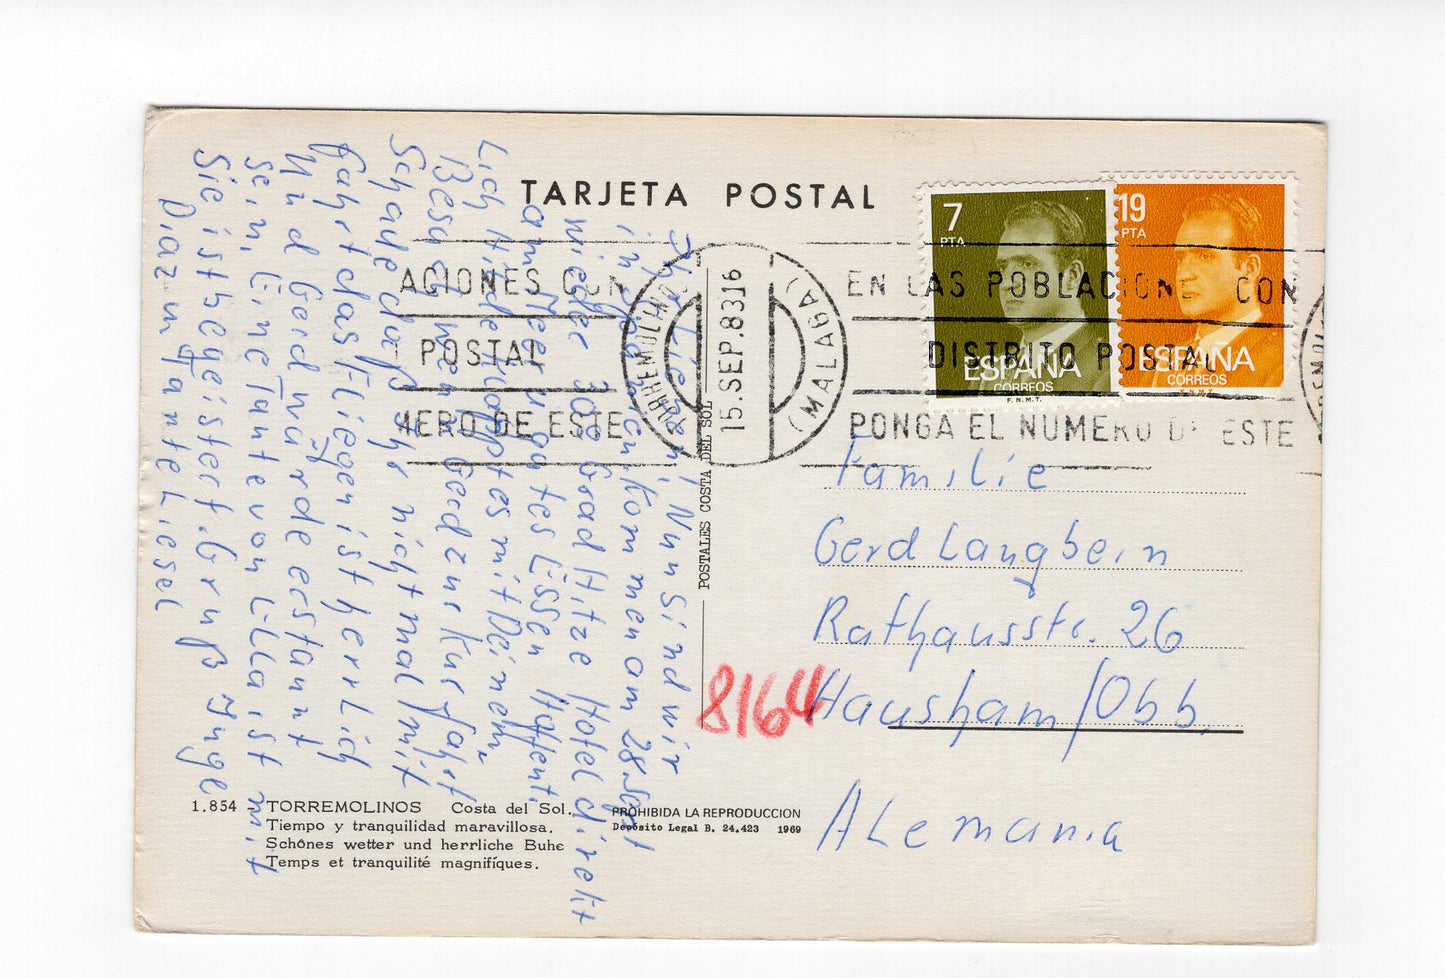 TARJETA POSTAL
7
PTA
ESPAÑA
CORREOS
F.N.M.T.
19
PTA
ESPAÑA
CORREOS
F.N.M.T.
ACIONES CON
POSTAL
MERO DE ESTE
TORREMOLINOS
15.SEP.83 16
(MALAGA)
EN LAS POBLACIONE CON
DISTRITO POSTAL
PONGA EL NUMERO DE ESTE
Ihr Lieben, Nun sind wir
in Spanien, kommen am 28. Sept
wieder 30° Grad Hitze Hotel direkt
am Meer u gutes Essen Hoffent.
Lich
Besuch wenn Gerd zur Kur fährt
Schade daß Ihr nicht mal mit
fahrt das Fliegen ist herrlich
Und Gerd würde erstaunt
sein, Eine Tante von Lilla ist mit
Sie ist begeistert. Gruß Inge
Tante Liesel
POSTALES COSTA DEL SOL
Familie
Gerd Langbein
Rathausstr. 26
8164 Hausham/Obb.
Alemania
1.854 TORREMOLINOS Costa del Sol.
Tiempo y tranquilidad maravillosa.
Schönes wetter und herrliche Buhe
Temps et tranquilité magnifiques.
PROHIBIDA LA REPRODUCCION
Depósito Legal B. 24.423 1969